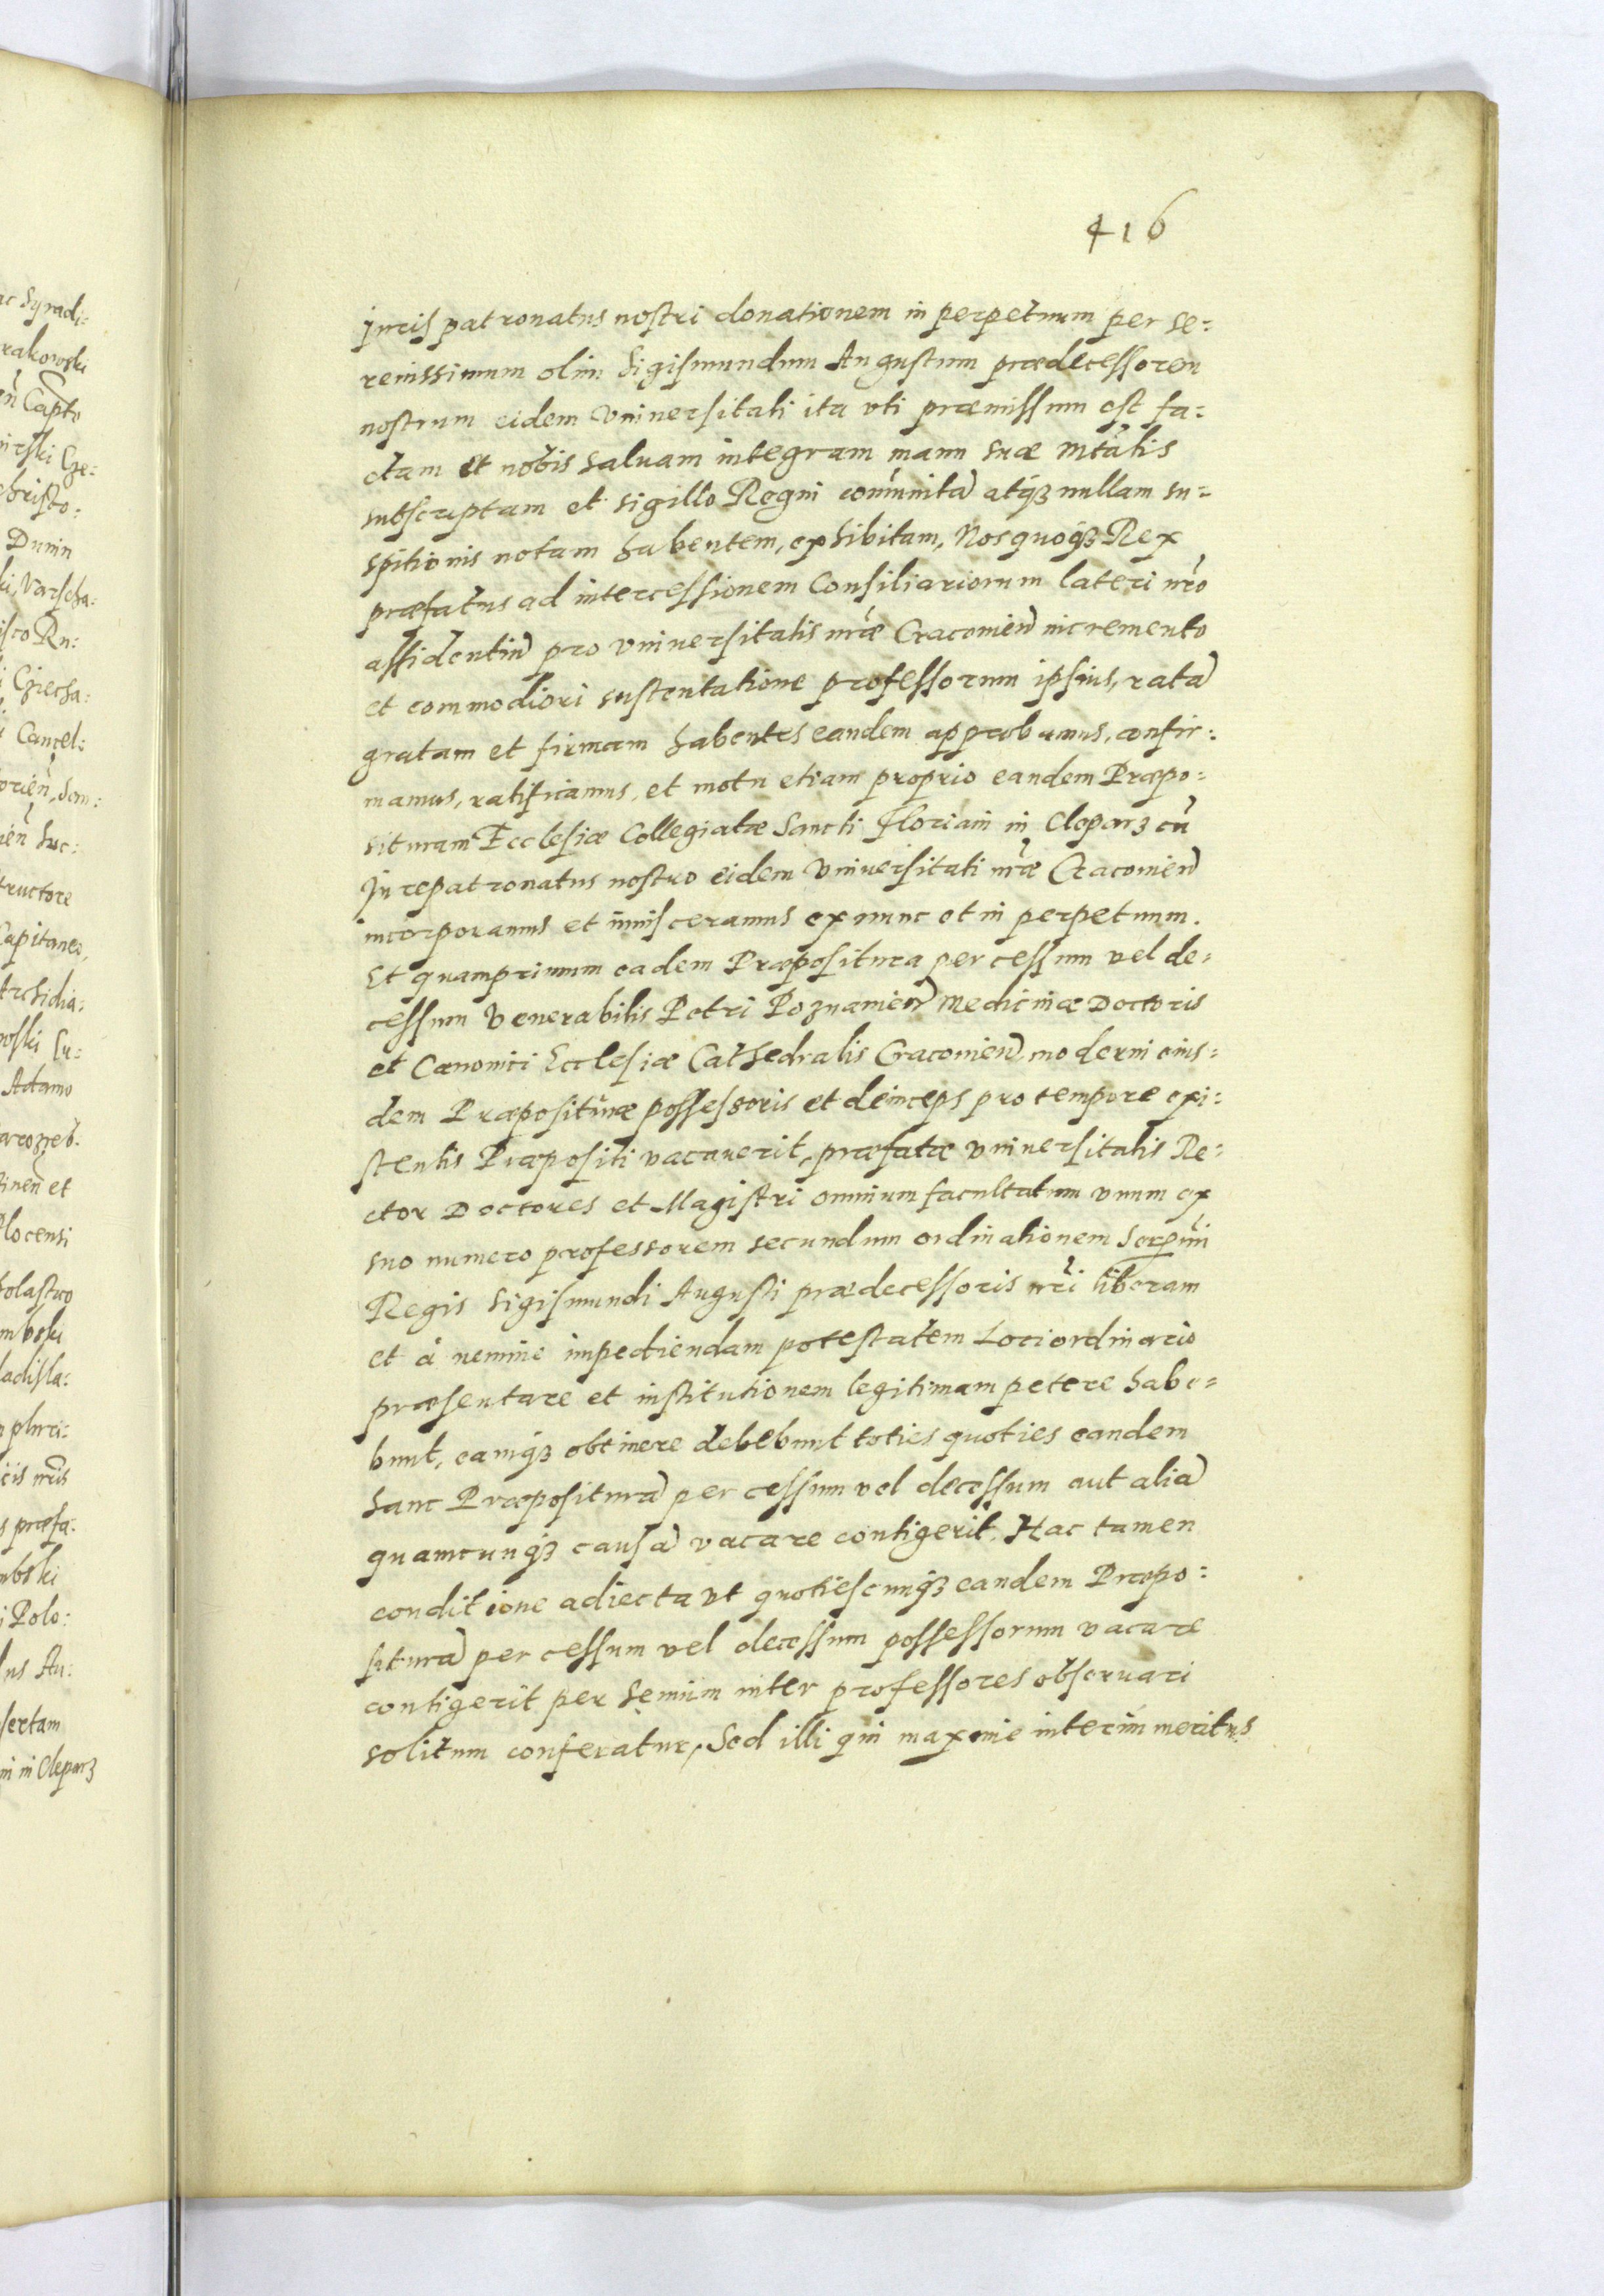 416
Juris patronatus nostri donationem in perpetuum per se:
renissimum olim Sigismundum Augustum prædecessorem
nostrum eidem Vniuersitati ita vti præmissum est fa:
ctam et nobis saluam integram manu suæ Mtátis
subscriptam et sigillo Regni com̃unitã atq3 nullam su:
spitionis notam habentem, exhibitam, Nos quoq3 Rex
præfatus ad intercessionem Consiliariorum lateri nr̃o
assidentiũ pro vniuersitatis nr̃æ Cracouieñ incremento
et commodiori sustentatione professorum ipsius, ratã
gratam et firmam habentes eandem approbamus, confir:
mamus, ratificamus, et motu etiam proprio eandem Præpo:
situram Ecclesiæ Collegiatæ Sancti Floriani in Cleparz cũ
Jurepatronatus nostro eidem Vniuersitati nr̃æ Cracouieñ
incorporamus et inuisceramus ex nunc et in perpetuum.
Et quamprimum eadem Præpositura per cessum vel de:
cessum Venerabilis Petri Poznanieñ Medicinæ Doctoris
et Canonici Ecclesiæ Cathedralis Cracouieñ moderni eius:
dem Præposituræ possessoris et deinceps pro tempore exi:
stentis Præpositi vacauerit, præfatæ vniuersitatis Re:
ctor Doctores et Magistri omnium facultatum vnum ex
suo numero professorem secundum ordinationem Serẽmi
Regis Sigismundi Augusti prædecessoris nr̃i liberam
et à nemine impediendam potestatem Loci ordinario
præsentare et institutionem legitimam petere habe:
bunt, eamq3 obtinere debebunt toties quoties eandem
hanc Præpositurã per cessum vel decessum aut aliã
quamcunq3 causã vacare contigerit. Hac tamen
conditione adiecta vt quotiescunq3 eandem Præpo:
siturã per cessum vel decessum possessorum vacare
contigerit per seniũm inter professores obseruari
solitum conferatur, Sed illi qui maxime interim meritus
ac Syradi:
Christo:
Dunin
Cancel:
tructore
Capitaneo,
Adamo
locensi
in in Cleparz